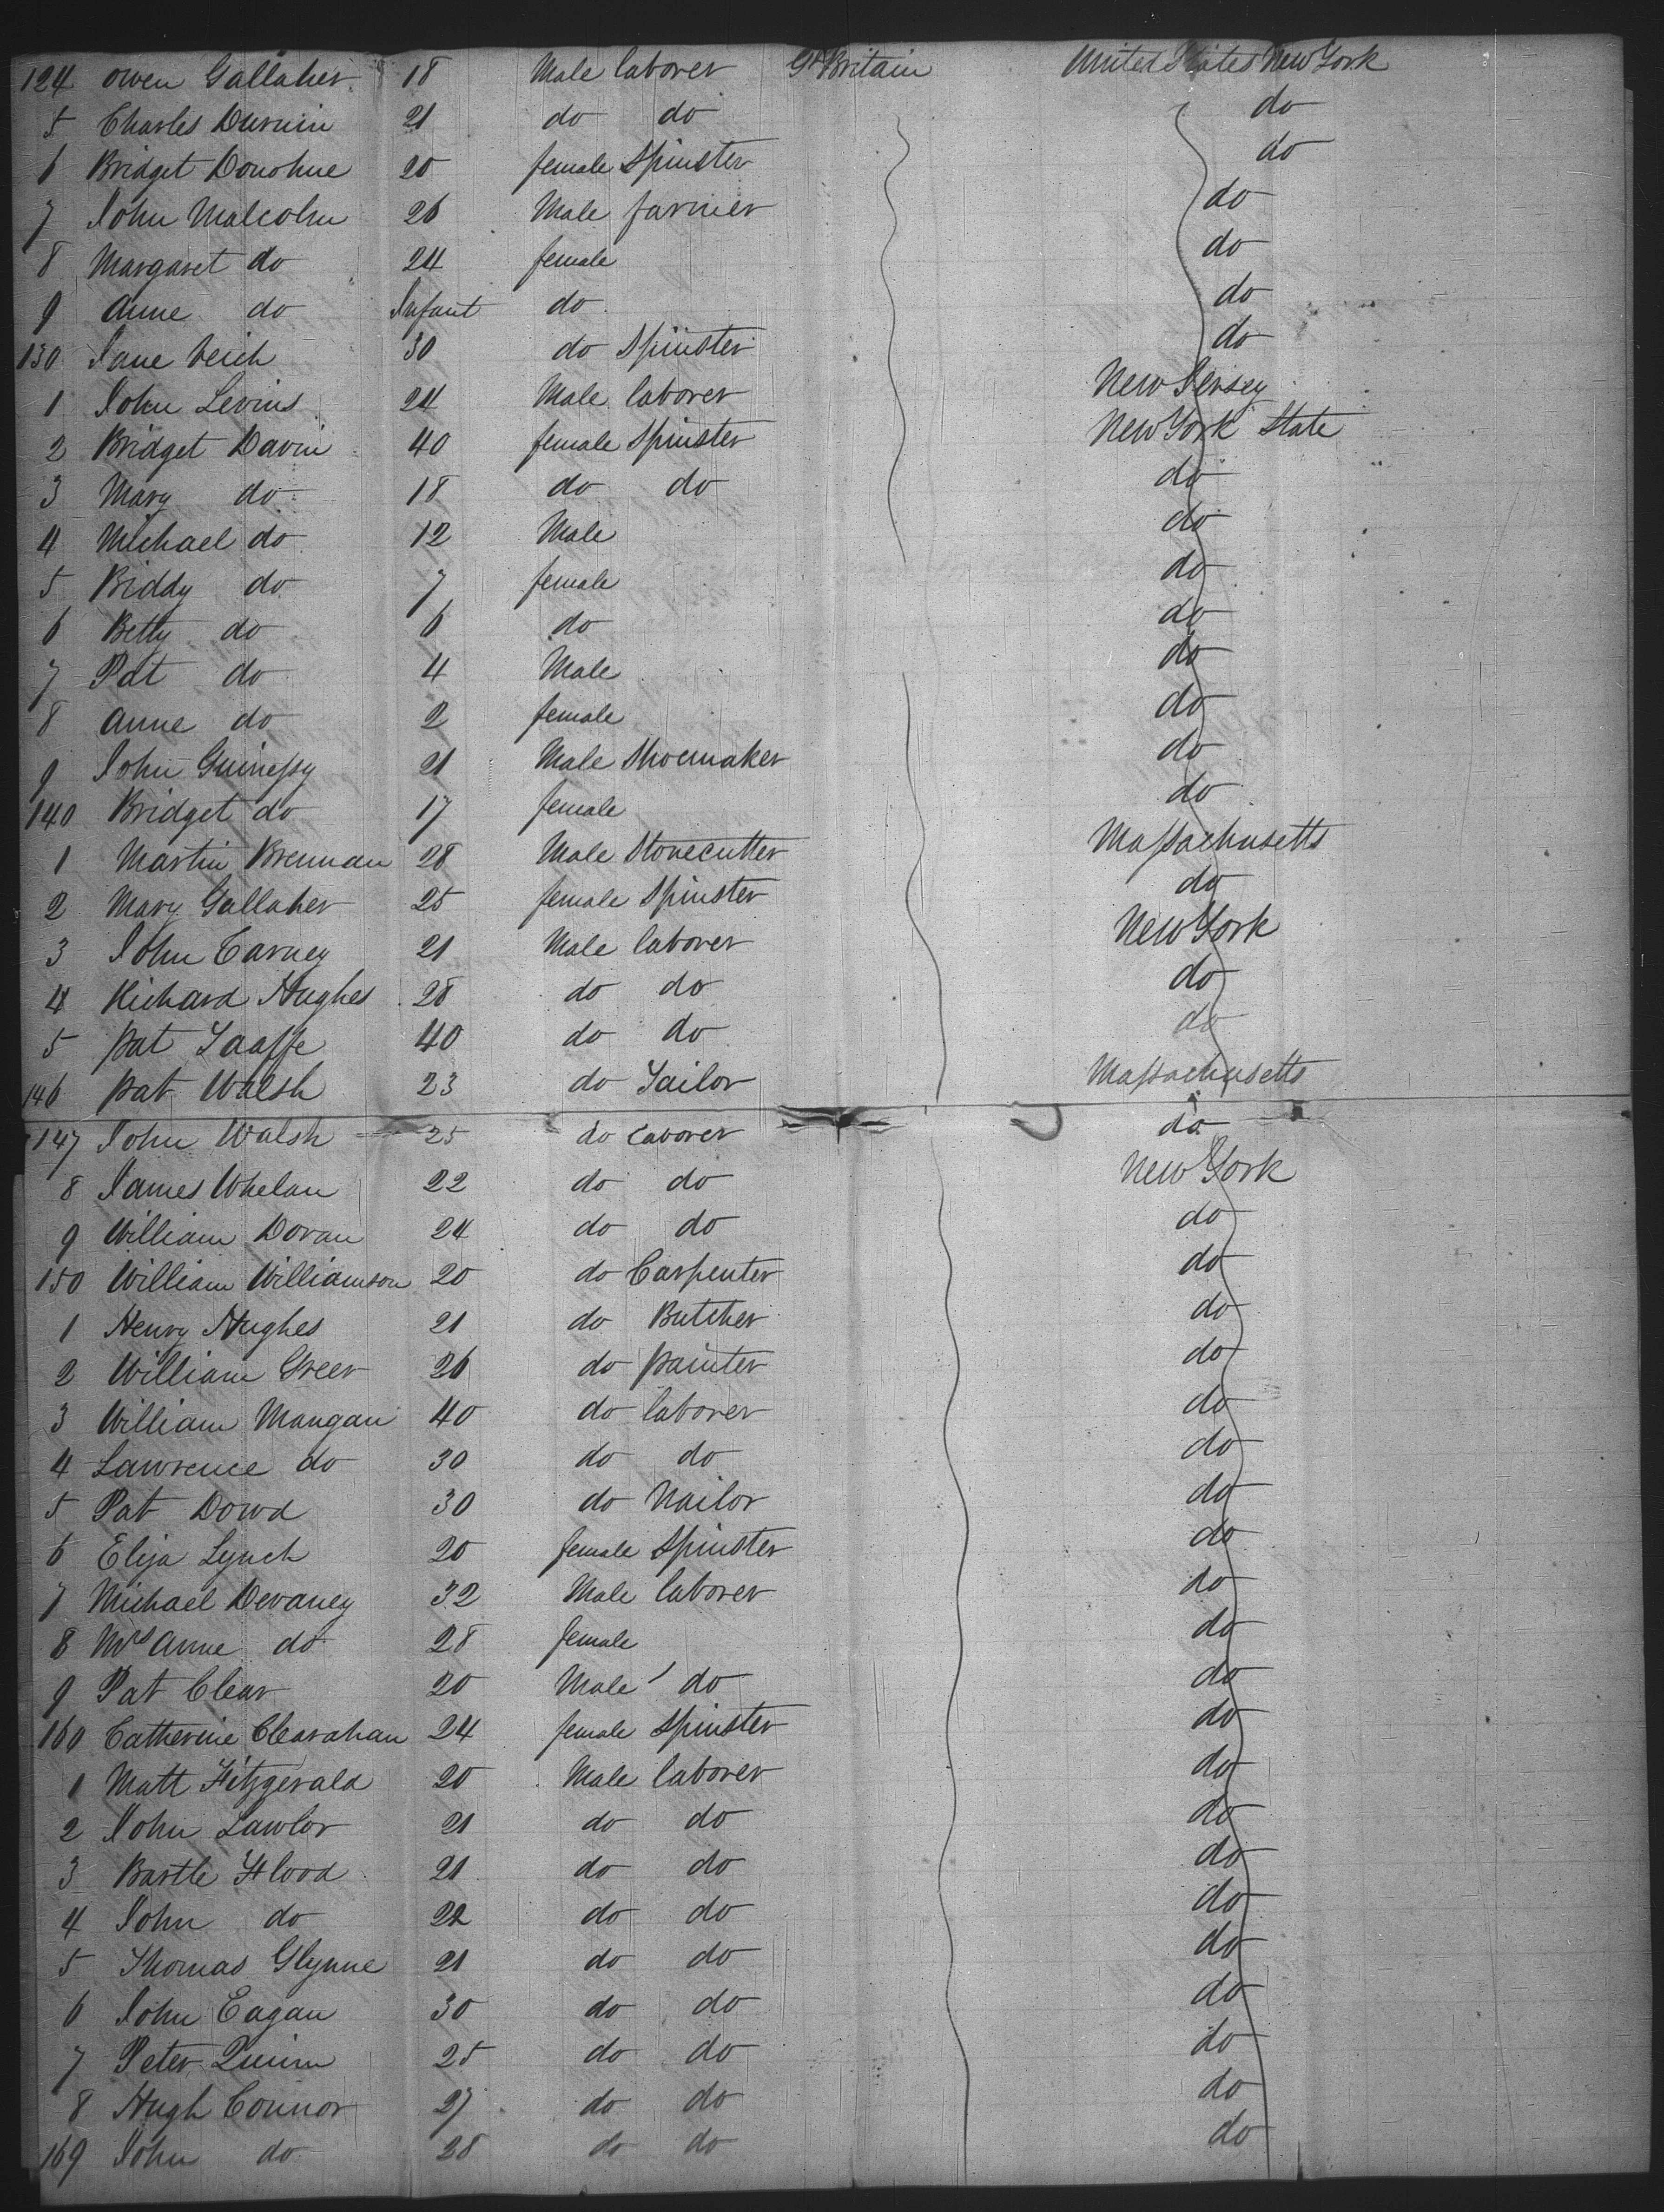 124 Owen Gallaher 18 Male laborer Gt Britain United States New York
5 Charles Durnin 21 do do do
6 Bridget Donohue 20 female Spinster do
7 John Malcolm 26 Male farmer do
8 Margaret do 24 female do
9 Anne do Infant do do
130 Jane Veich 30 do Spinster do
1 John Levins 24 Male laborer New Jersey
2 Bridget Davin 40 female Spinster New York State
3 Mary do 18 do do do
4 Michael do 12 Male do
5 Biddy do 7 female do
6 Betty do 6 do do
7 Pat do 4 Male do
8 Anne do 2 female do
9 John Guinessy 21 Male Shoemaker do
140 Bridget do 17 female do
1 Martin Brennan 28 Male Stonecutter Massachusetts
2 Mary Gallaher 25 female Spinster do
3 John Carney 21 Male laborer New York
4 Richard Hughes 28 do do do
5 Pat Taaffe 40 do do do
146 Pat Walsh 23 do Tailor Massachusetts
147 John Walsh 25 do Laborer do
8 James Whelan 22 do do New York
9 William Doran 24 do do do
150 William Williamson 20 do Carpenter do
1 Henry Hughes 21 do Butcher do
2 William Greer 26 do painter do
3 William Mangan 40 do laborer do
4 Lawrence do 30 do do do
5 Pat Dowd 30 do Nailor do
6 Eliza Lynch 20 female Spinster do
7 Michael Devaney 32 Male laborer do
8 Mrs Anne do 28 female do
9 Pat Clear 20 Male do do
160 Catherine Clearahan 24 female Spinster do
1 Matt Fitzgerald 20 Male laborer do
2 John Lawlor 21 do do do
3 Bartle Flood 21 do do do
4 John do 22 do do do
5 Thomas Glynne 21 do do do
6 John Eagan 30 do do do
7 Peter Quinn 25 do do do
8 Hugh Connor 27 do do do
169 John do 28 do do do